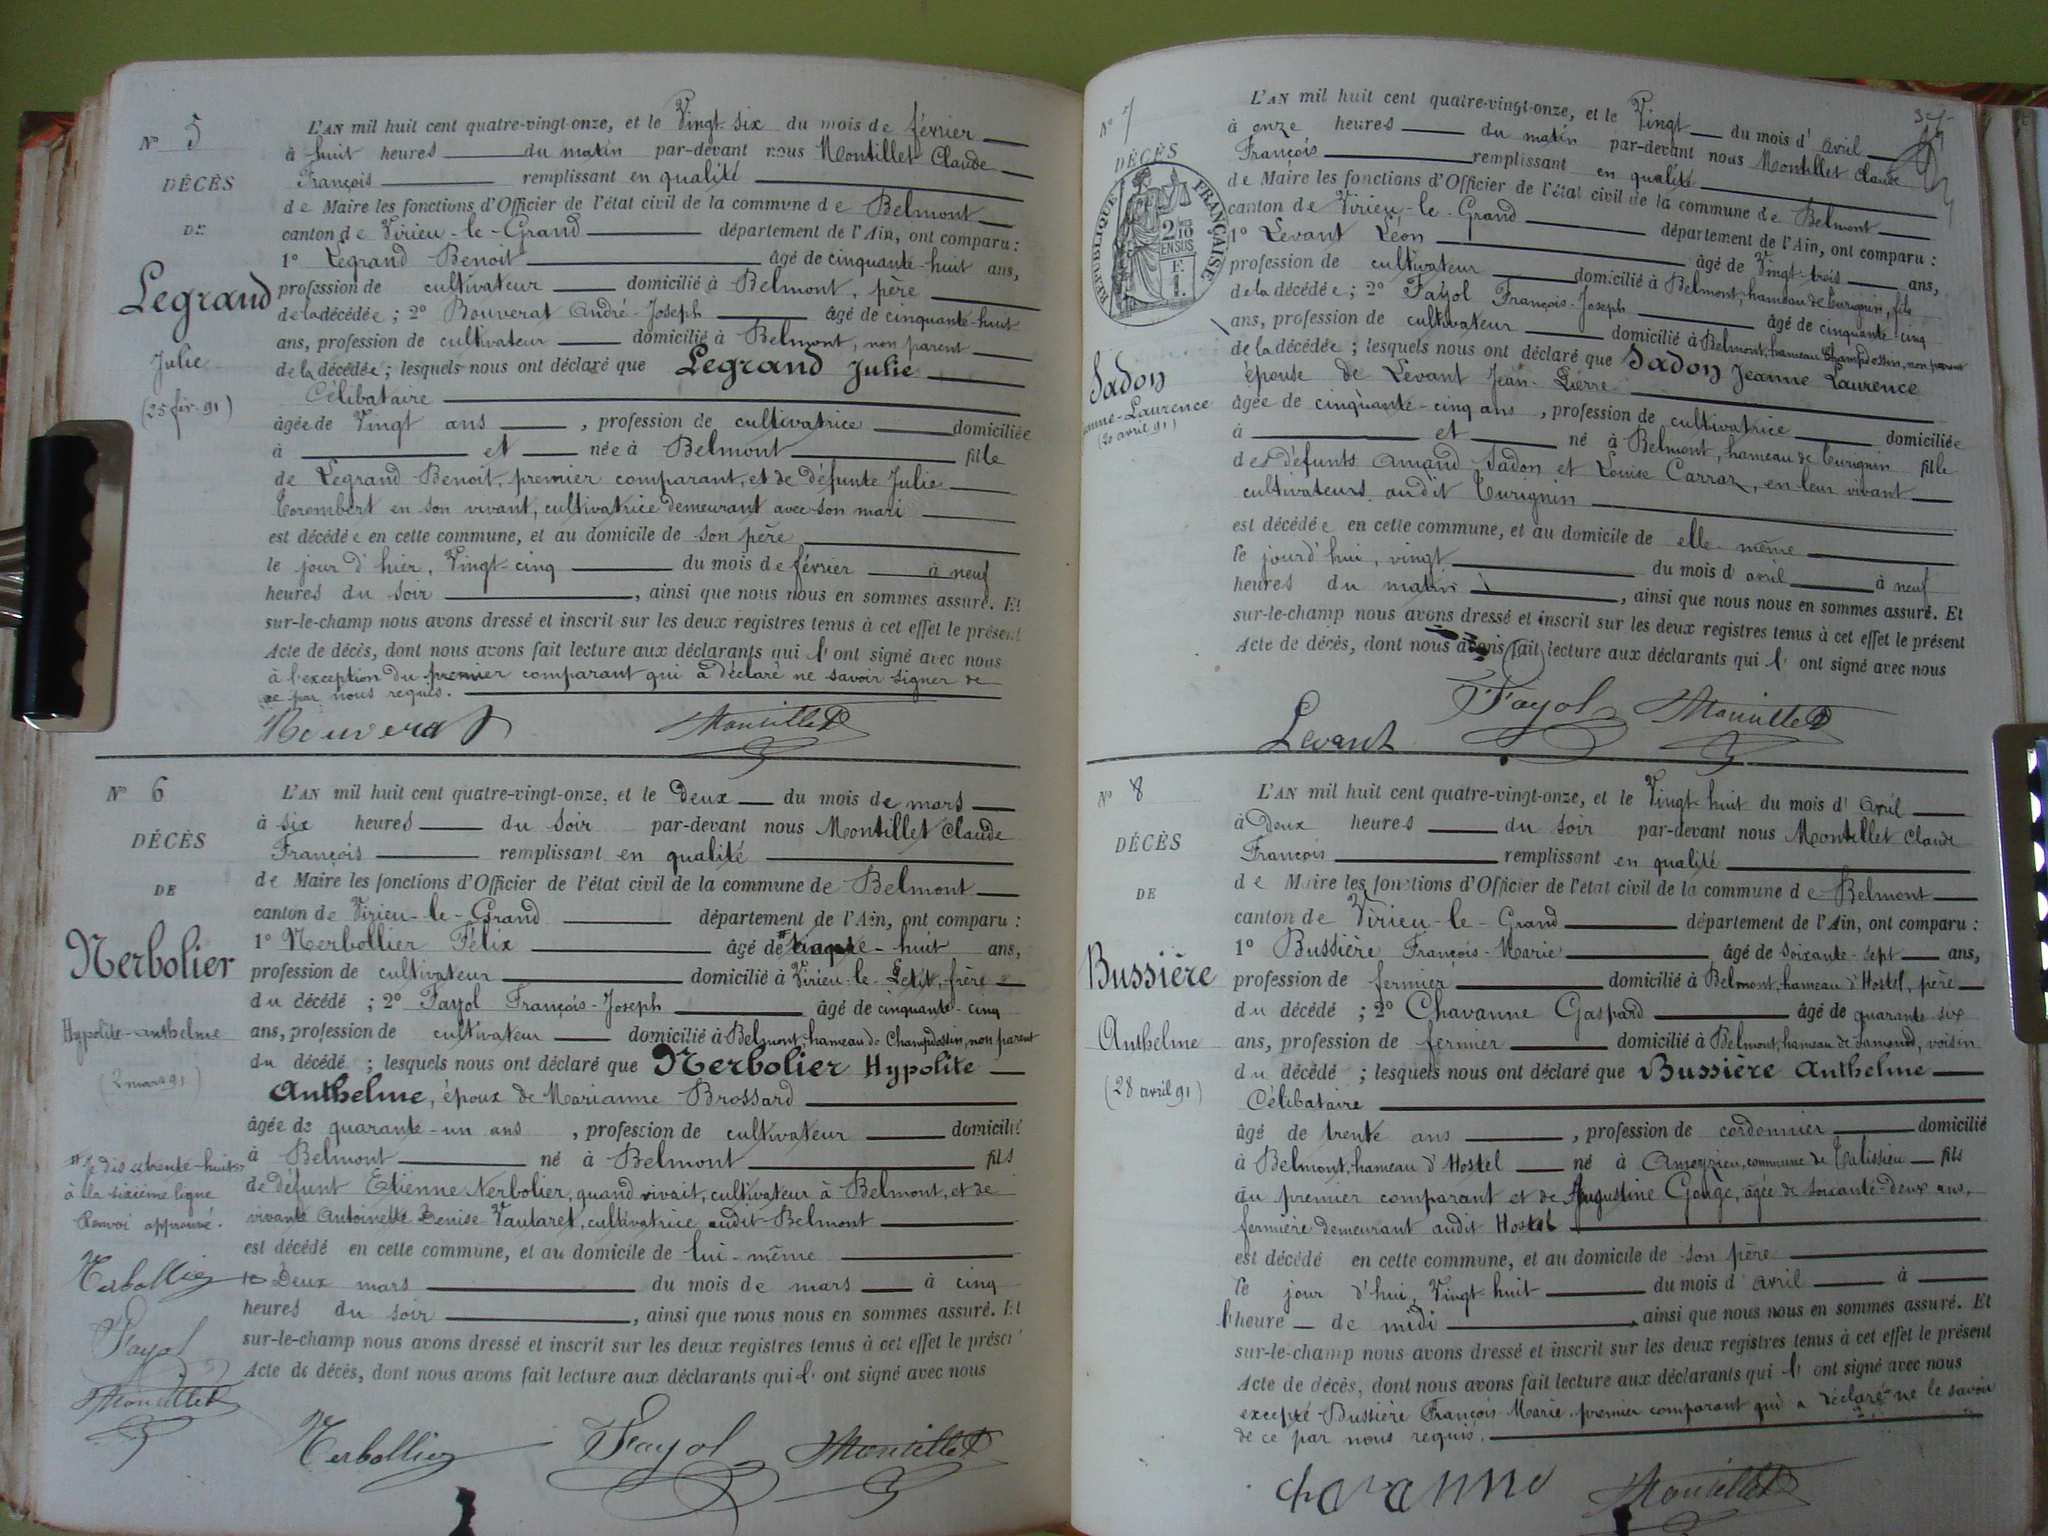 N° 5
DÉCÈS
DE
Legrand
Julie
(25 fév. 91)
L'AN mil huit cent quatre-vingt-onze, et le Vingt-six du mois de février
à huit heures du matin par-devant nous Montillet Claude
François remplissant en qualité
de Maire les fonctions d'Officier de l'état civil de la commune de Belmont
canton de Virieu-le-Grand département de l'Ain, ont comparu :
1° Legrand Benoit âgé de cinquante-huit ans,
profession de cultivateur domicilié à Belmont, père
de la décédée ; 2° Bouverat André-Joseph âgé de cinquante-huit
ans, profession de cultivateur domicilié à Belmont, non parent
de la décédée ; lesquels nous ont déclaré que Legrand Julie
Célibataire
âgée de Vingt ans , profession de cultivatrice domiciliée
à et née à Belmont fille
de Legrand Benoit, premier comparant, et de défunte Julie
Torembert en son vivant, cultivatrice demeurant avec son mari
est décédée en cette commune, et au domicile de son père
le jour d'hier, Vingt-cinq du mois de février à neuf
heures du soir , ainsi que nous nous en sommes assuré. Et
sur-le-champ nous avons dressé et inscrit sur les deux registres tenus à cet effet le présent
Acte de décès, dont nous avons fait lecture aux déclarants qui l'ont signé avec nous
à l'exception du premier comparant qui a déclaré ne savoir signer de
ce par nous requis.
Bouverat Montillet
N° 6
DÉCÈS
DE
Nerbolier
Hypolite-anthelme
(2 mars 91)
L'AN mil huit cent quatre-vingt-onze, et le Deux du mois de mars
à six heures du soir par-devant nous Montillet Claude
François remplissant en qualité
de Maire les fonctions d'Officier de l'état civil de la commune de Belmont
canton de Virieu-le-Grand département de l'Ain, ont comparu :
1° Nerbollier Félix âgé de -huit ans,
profession de cultivateur domicilié à Virieu-le-Petit, frère
du décédé ; 2° Fayol François-Joseph âgé de cinquante-cinq
ans, profession de cultivateur domicilié à Belmont, hameau de Champdossin, non parent
du décédé ; lesquels nous ont déclaré que Nerbolier Hypolite
Anthelme, époux de Marianne Brossard
âgée de quarante-un ans , profession de cultivateur domicilié
à Belmont né à Belmont fils
de défunt Etienne Nerbolier, quand vivait, cultivateur à Belmont, et de
vivante Antoinette Denise Vautaret, cultivatrice audit Belmont
est décédé en cette commune, et au domicile de lui-même
le Deux mars du mois de mars à cinq
heures du soir , ainsi que nous nous en sommes assuré. Et
sur-le-champ nous avons dressé et inscrit sur les deux registres tenus à cet effet le présent
Acte de décès, dont nous avons fait lecture aux déclarants qui l'ont signé avec nous
je dis trente-huit
à la sixième ligne
Renvoi approuvé.
Nerbollier
Fayol
Montillet
Nerbollier Fayol Montillet
N° 7
DÉCÈS
RÉPUBLIQUE FRANÇAISE
2/10
EN SUS
Sadon
Jeanne-Laurence
(20 avril 91)
L'AN mil huit cent quatre-vingt-onze, et le Vingt du mois d'avril
à onze heures du matin par-devant nous Montillet Claude
François remplissant en qualité
de Maire les fonctions d'Officier de l'état civil de la commune de Belmont
canton de Virieu-le-Grand département de l'Ain, ont comparu :
1° Levant Léon âgé de Vingt-trois ans,
profession de cultivateur domicilié à Belmont, hameau de Turignin, fils
de la décédée ; 2° Fayol François-Joseph âgé de cinquante-cinq
ans, profession de cultivateur domicilié à Belmont, hameau Champdossin, non parent
de la décédée ; lesquels nous ont déclaré que Sadon Jeanne Laurence
épouse de Levant Jean-Pierre
âgée de cinquante-cinq ans , profession de cultivatrice domiciliée
à et né à Belmont, hameau de Turignin fille
des défunts Amand Sadon et Louise Carraz, en leur vivant
cultivateurs audit Turignin
est décédée en cette commune, et au domicile de elle-même
le jourd'hui, vingt du mois d'avril à neuf
heures du matin , ainsi que nous nous en sommes assuré. Et
sur-le-champ nous avons dressé et inscrit sur les deux registres tenus à cet effet le présent
Acte de décès, dont nous avons fait lecture aux déclarants qui l'ont signé avec nous
Levant Fayol Montillet
N° 8
DÉCÈS
DE
Bussière
Anthelme
(28 avril 91)
L'AN mil huit cent quatre-vingt-onze, et le Vingt-huit du mois d'avril
à Deux heures du soir par-devant nous Montillet Claude
François remplissant en qualité
de Maire les fonctions d'Officier de l'état civil de la commune de Belmont
canton de Virieu-le-Grand département de l'Ain, ont comparu :
1° Bussière François-Marie âgé de soixante-sept ans,
profession de fermier domicilié à Belmont, hameau d'Hostel, père
du décédé ; 2° Chavanne Gaspard âgé de quarante six
ans, profession de fermier domicilié à Belmont, hameau de Samonod, voisin
du décédé ; lesquels nous ont déclaré que Bussière Anthelme
Célibataire
âgé de trente ans , profession de cordonnier domicilié
à Belmont, hameau d'Hostel né à Ameyzieu, commune de Talissieu fils
du premier comparant et de Augustine Gouge, âgée de soixante-deux ans,
fermière demeurant audit Hostel
est décédé en cette commune, et au domicile de son père
le jour d'hui, Vingt-huit du mois d'avril à
l'heure de midi , ainsi que nous nous en sommes assuré. Et
sur-le-champ nous avons dressé et inscrit sur les deux registres tenus à cet effet le présent
Acte de décès, dont nous avons fait lecture aux déclarants qui l'ont signé avec nous
excepté Bussière François-Marie premier comparant qui a déclaré ne le savoir
de ce par nous requis.
Chavanne Montillet